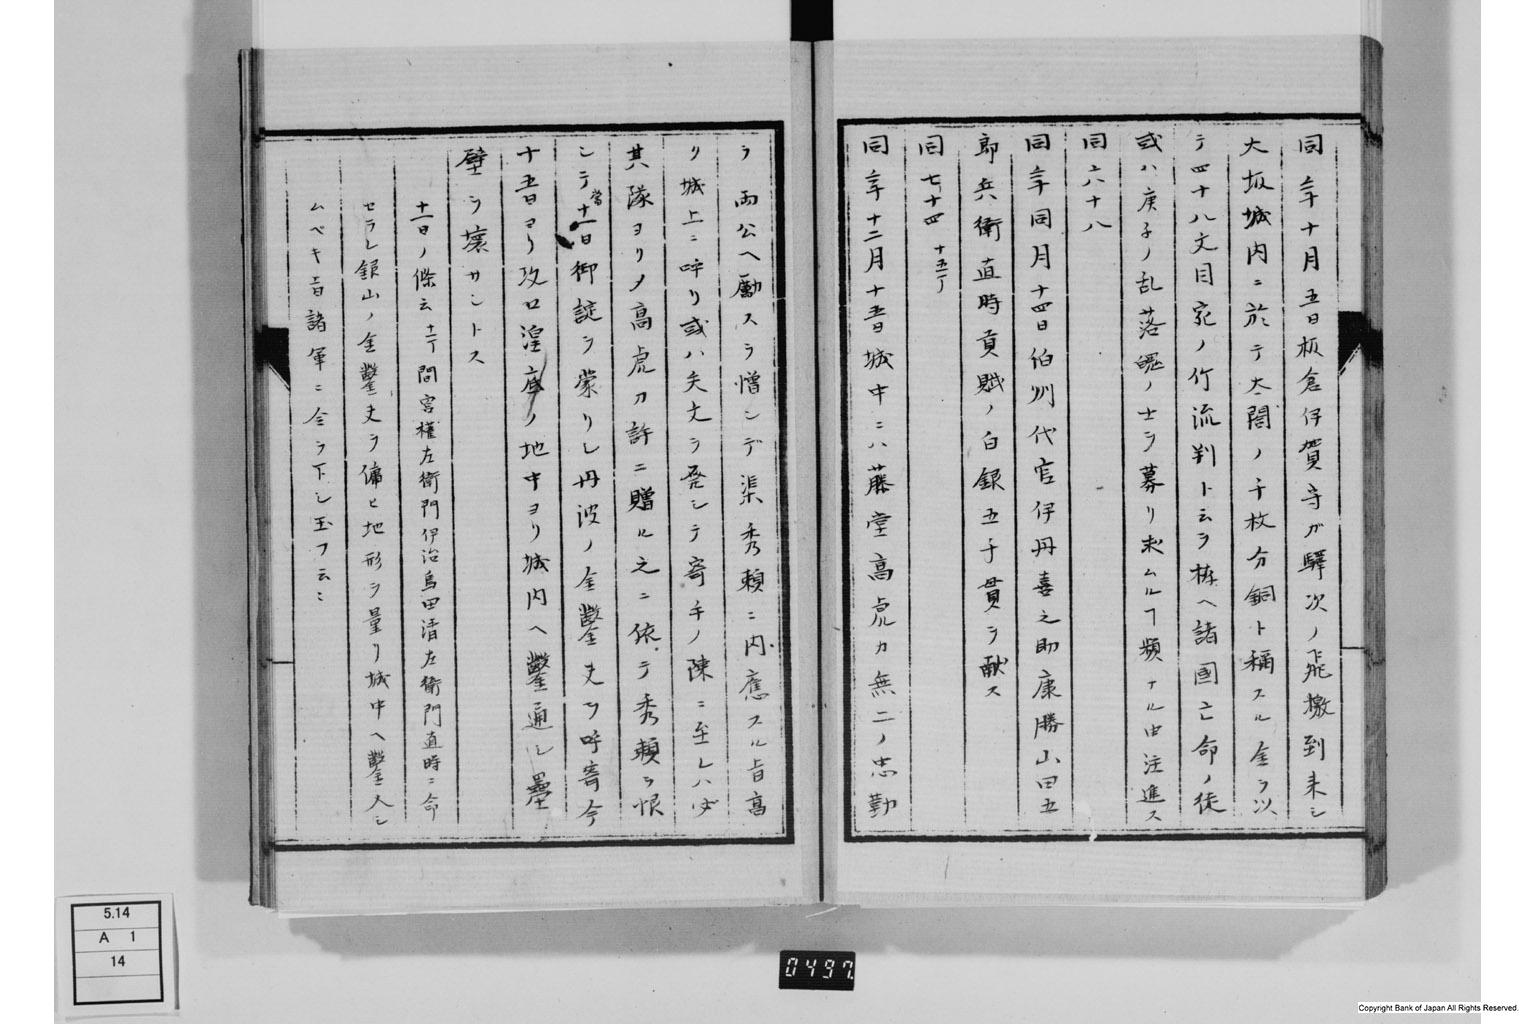 同年十月五日板倉伊賀守ガ驛次ノ飛檄到来シ
大坂城内ニ於テ太閤ノ千枚分銅ト稱スル金ヲ以
テ四十八文目宛ノ竹流判ト云ヲ拵ヘ諸國亡命ノ徒
或ハ庚子ノ乱落魄ノ士ヲ募リ求ムルヿ頻ナル由注進ス
同六十八
同年同月十四日伯州代官伊丹喜之助康勝山田五
郎兵衛直時貢賦ノ白銀五千貫ヲ献ス
同七十四 十五丁
同年十二月十五日城中ニハ藤堂高虎カ無二ノ忠勤
ヲ両公ヘ励スヲ憎ンデ渠秀頼ニ内應スル旨高
リ城上ニ呼リ或ハ矢文ヲ発シテ寄手ノ陳ニ至レハ必
其隊ヨリメ高虎カ許ニ贈ル之ニ依テ秀頼ヲ恨
シテ當十一日御諚ヲ蒙リシ丹波ノ金鑿丈ヲ呼寄今
十五日ヨリ攻口湟底ノ地中ヨリ城内ヘ鑿通シ壘
壁ヲ壊サントス
十一日ノ條云十一丁間宮權左衛門伊治島田清左衛門直時ニ命
セラレ銀山ノ金鑿丈ヲ傭ヒ地形ヲ量リ城中ヘ鑿入シ
ムベキ旨諸軍ニ令ヲ下シ玉フ云々
5.14
A 1
14
0497
Copyright Bank of Japan All Rights Reserved.